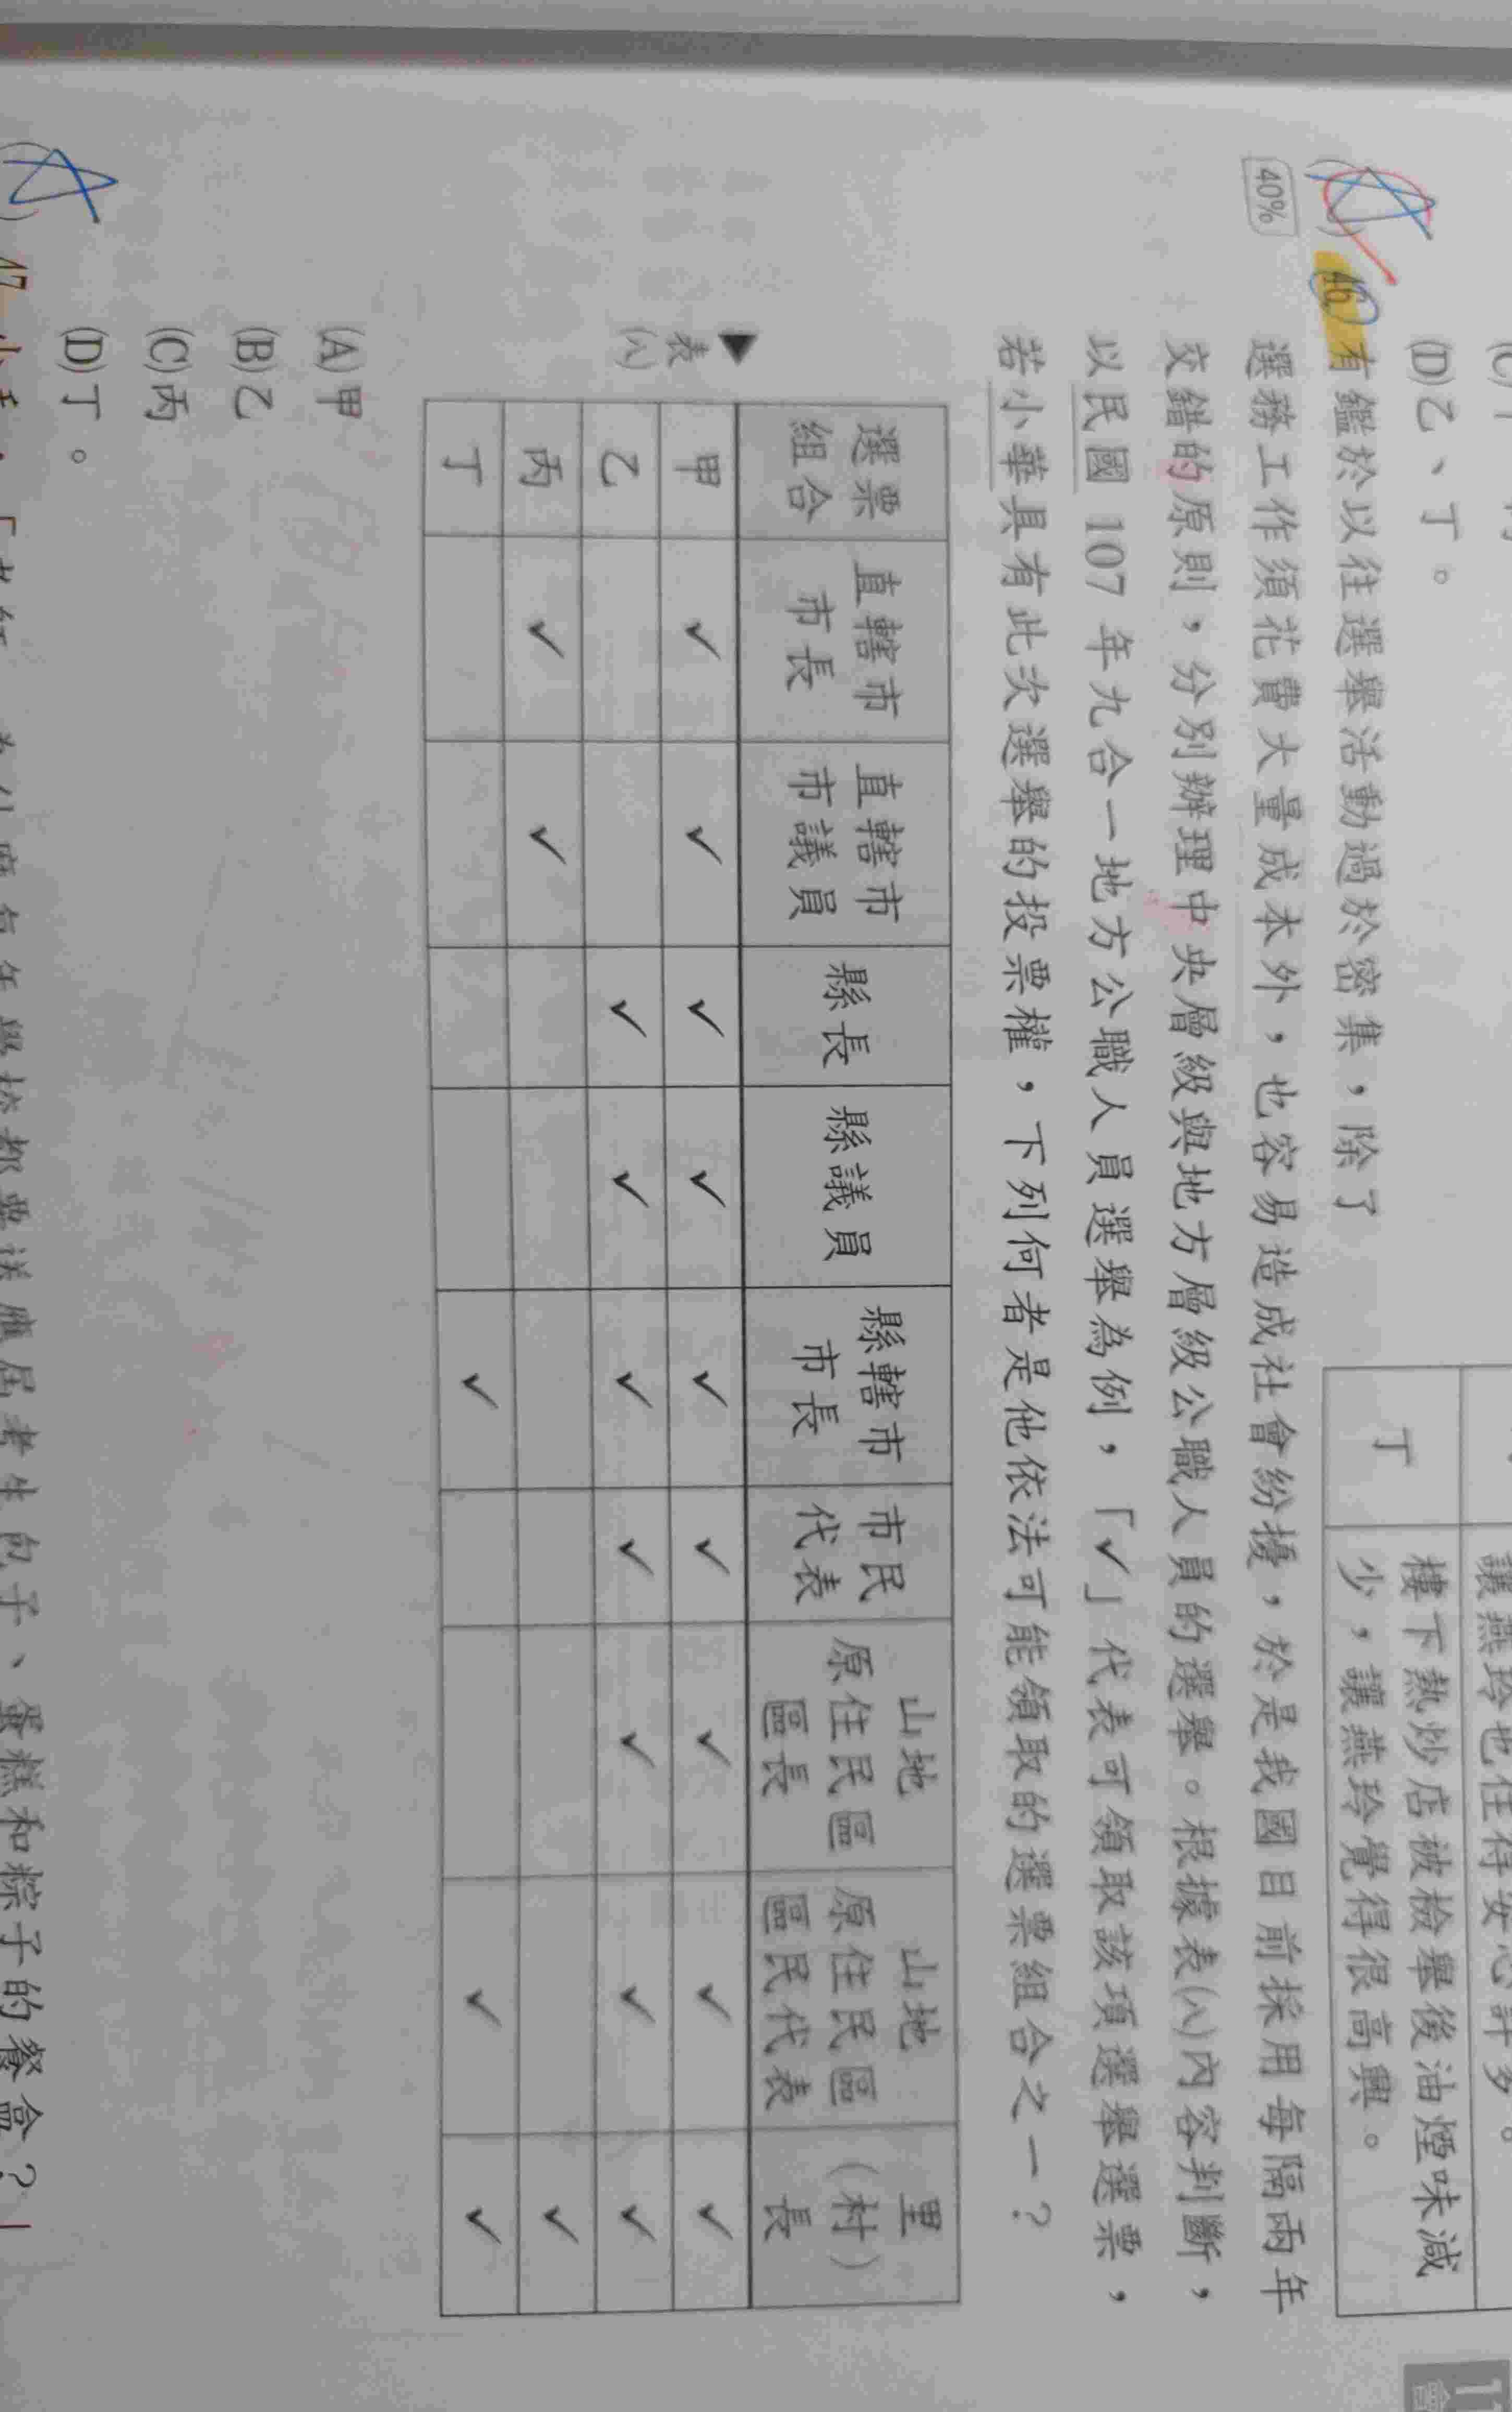 (D)乙、丁。
丁
樓下熱炒店被檢舉後油煙味減
少，讓燕玲覺得很高興。
40%
46.有鑑於以往選舉活動過於密集，除了
選務工作須花費大量成本外，也容易造成社會紛擾，於是我國目前採用每隔兩年
交錯的原則，分別辦理中央層級與地方層級公職人員的選舉。根據表(八)內容判斷，
以民國 107 年九合一地方公職人員選舉為例，「✓」代表可領取該項選舉選票，
若小華具有此次選舉的投票權，下列何者是他依法可能領取的選票組合之一？
▼表(八)
選票組合 直轄市市長 直轄市市議員 縣長 縣議員 縣轄市市長 市民代表 山地原住民區區長 山地原住民區區民代表 里（村）長
甲 ✓ ✓ ✓ ✓ ✓ ✓ ✓ ✓ ✓
乙 ✓ ✓ ✓ ✓ ✓ ✓ ✓
丙 ✓ ✓ ✓
丁 ✓ ✓ ✓
(A)甲
(B)乙
(C)丙
(D)丁。
47.
包子、蛋糕和粽子的餐盒？」